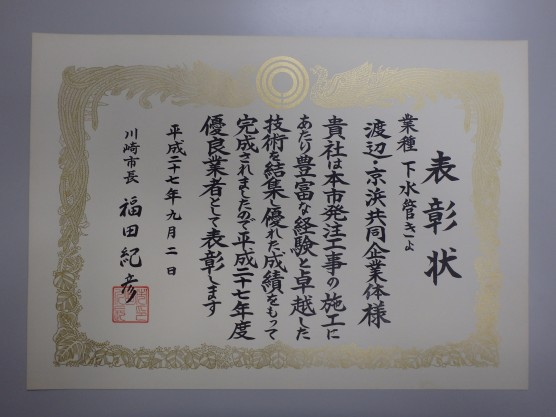 表彰状
業種 下水管きょ
渡辺・京浜共同企業体様
貴社は本市発注工事の施工に
あたり豊富な経験と卓越した
技術を結集し優れた成績をもって
完成されましたので平成二十七年度
優良業者として表彰します
平成二十七年九月二日
川崎市長 福田紀彦